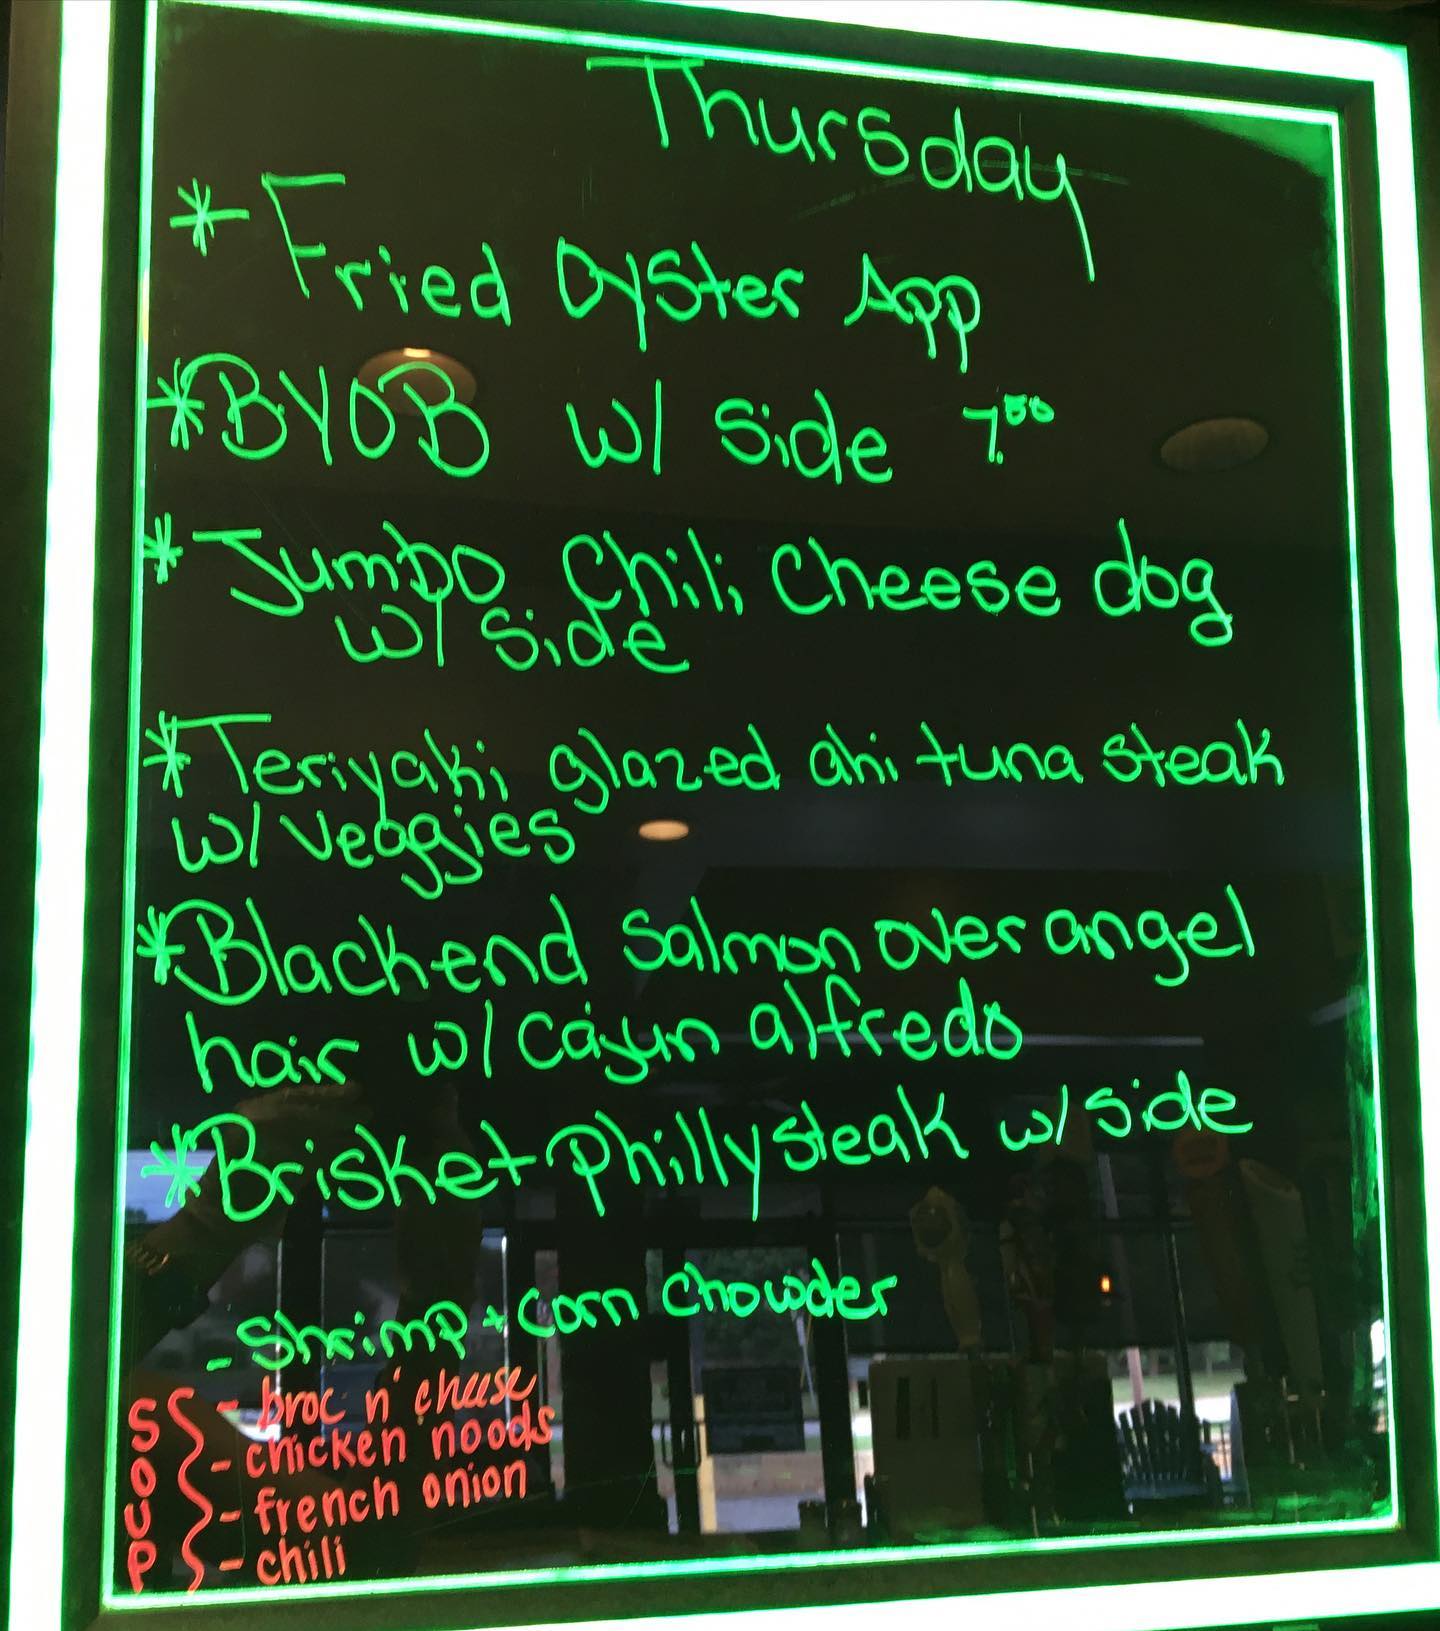 Thursday
* Fried Oyster App
* BYOB w/ Side 7.00
* Jumbo Chili Cheese dog
w/ side
* Teriyaki glazed ahi tuna steak
w/ Veggies
* Blackend Salmon over angel
hair w/ Cajun alfredo
* Brisket Philly steak w/ side
- Shrimp + Corn Chowder
SOUP
- broc n' cheese
- chicken noods
- french onion
- chili